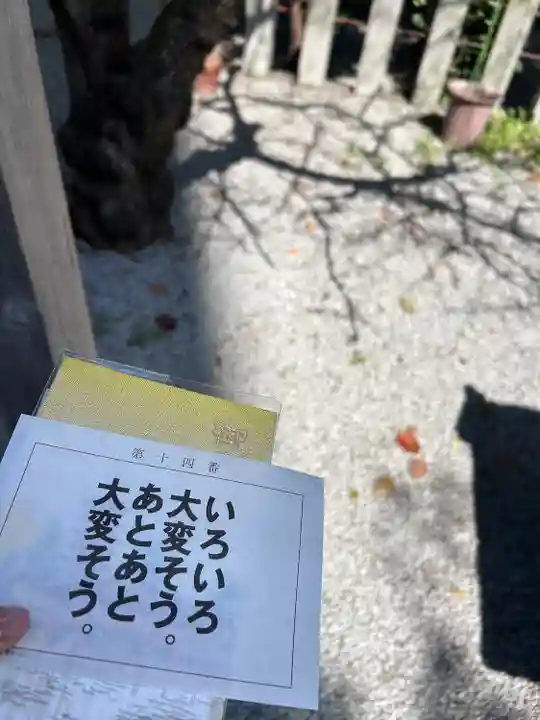 第十四番
いろいろ
大変そう。
あとあと
大変そう。
御